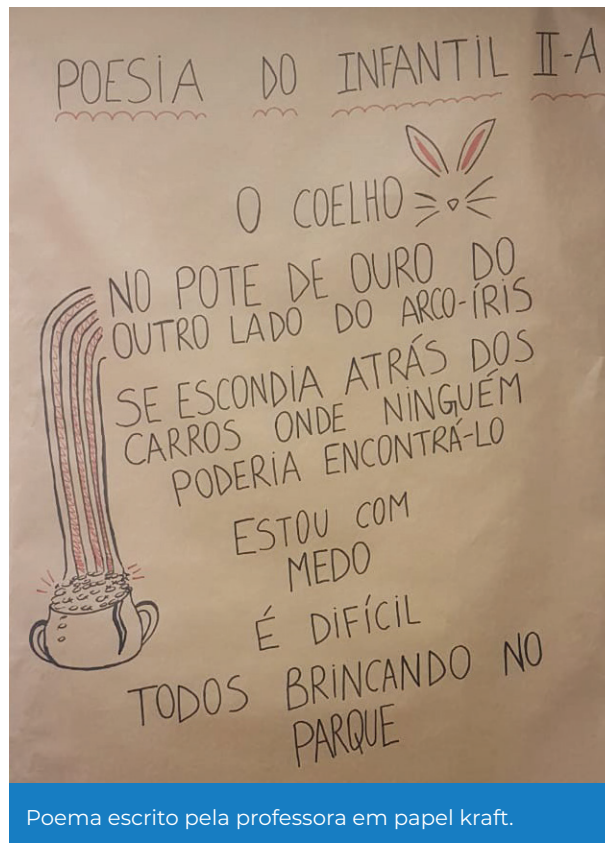 POESIA DO INFANTIL II-A
O COELHO
NO POTE DE OURO DO
OUTRO LADO DO ARCO-ÍRIS
SE ESCONDIA ATRÁS DOS
CARROS ONDE NINGUÉM
PODERIA ENCONTRÁ-LO
ESTOU COM
MEDO
É DIFÍCIL
TODOS BRINCANDO NO
PARQUE
Poema escrito pela professora em papel kraft.